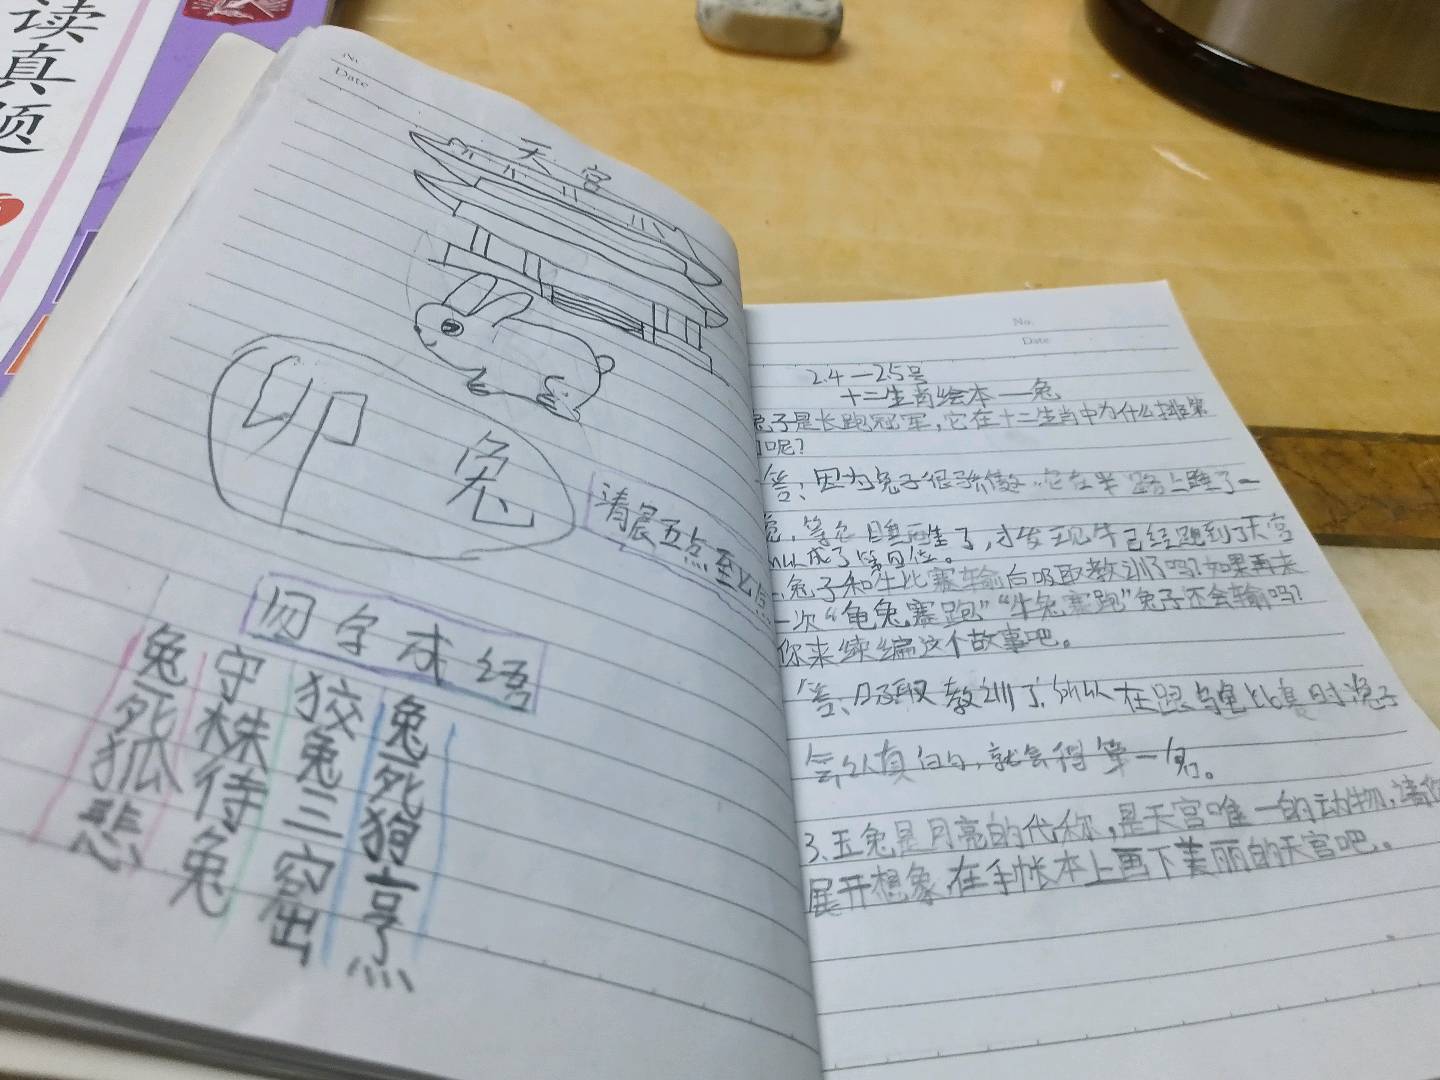 读真题
No.
Date
天宫
卯 兔
清晨五点至七点
四字成语
兔死狗烹
狡兔三窟
守株待兔
兔死狐悲
No.
Date
2.4—2.5号
十二生肖绘本——兔
兔子是长跑冠军，它在十二生肖中为什么排第
呢？
答：因为兔子很骄傲 它在半路上睡了一
觉，等兔 醒了，才发现牛已经跑到了天宫
所以成了第四位。
兔子和牛比赛输后吸取教训了吗？如果再来
一次“龟兔赛跑”“牛兔赛跑”兔子还会输吗？
你来续编这个故事吧。
答：吸取教训了，所以在跟乌龟比赛时兔子
会认真的，就会得第一名。
3、玉兔是月亮的代称，是天宫唯一的动物，请你
展开想象，在手帐本上画下美丽的天宫吧。